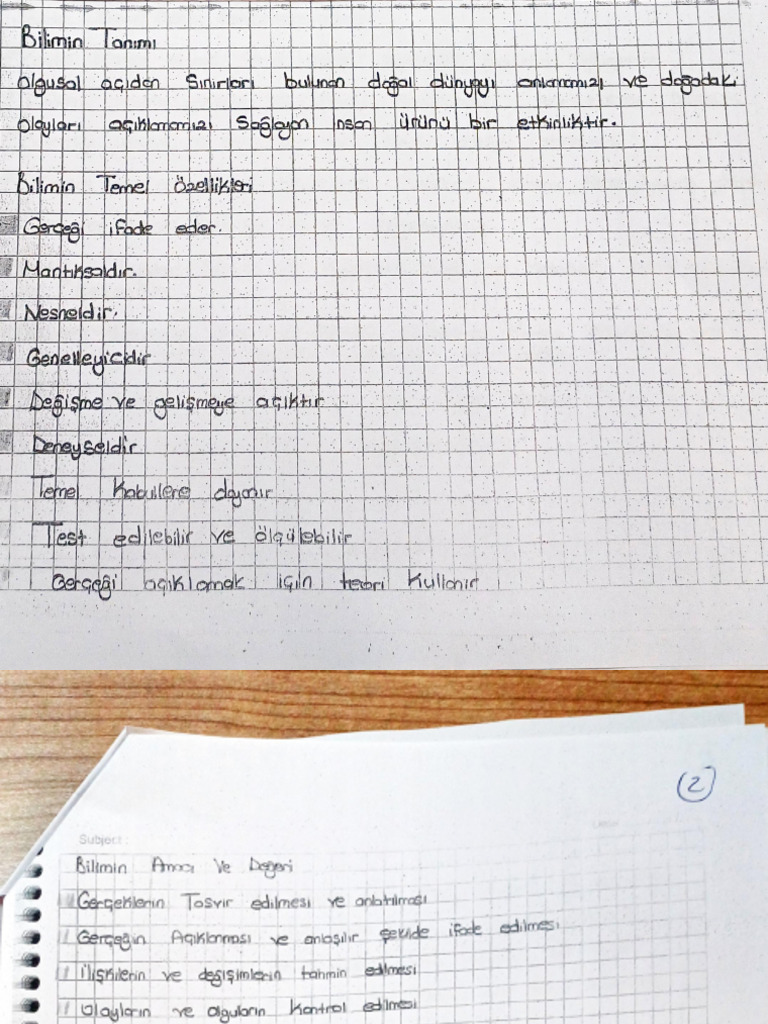 Bilimin Tanımı
Olgusal açıdan sınırları bulunan doğal dünyayı anlamamızı ve doğadaki
olayları açıklamamızı sağlayan insan ürünü bir etkinliktir.
Bilimin Temel Özellikleri
Gerçeği ifade eder.
Mantıksaldır.
Nesneldir.
Genelleyicidir
Değişme ve gelişmeye açıktır
Deneyseldir
Temel Kabullere dayanır
Test edilebilir ve ölçülebilir
Gerçeği açıklamak için teori kullanır
2
Subject:
Bilimin Amacı Ve Değeri
Gerçeklerin Tasvir edilmesi ve anlatılması
Gerçeğin Açıklanması ve anlaşılır şekilde ifade edilmesi
İlişkilerin ve değişimlerin tahmin edilmesi
Olayların ve olguların Kontrol edilmesi